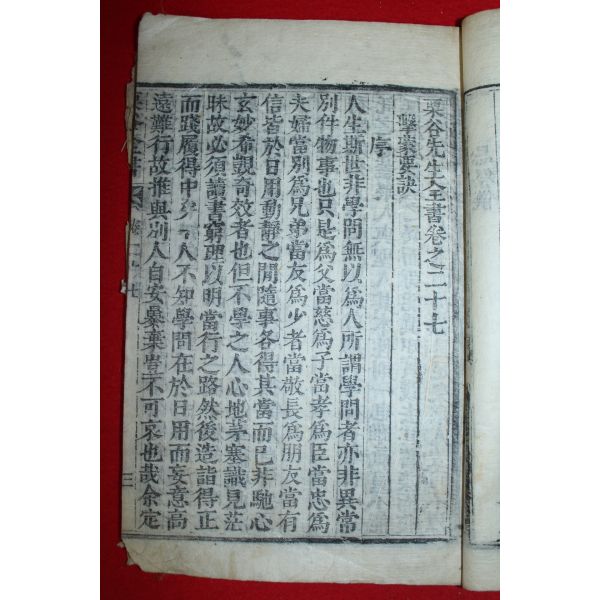 栗谷先生全書卷之二十七
擊蒙要訣
序
人生斯世非學問無以爲人所謂學問者亦非異常
別件物事也只是爲父當慈爲子當孝爲臣當忠爲
夫婦當別爲兄弟當友爲少者當敬長爲朋友當有
信皆於日用動靜之閒隨事各得其當而已非馳心
玄妙希覬奇效者也但不學之人心地茅塞識見茫
昧故必須讀書窮理以明當行之路然後造詣得正
而踐履得中矣今人不知學問在於日用而妄意高
遠難行故推與別人自安暴棄豈不可哀也哉余定